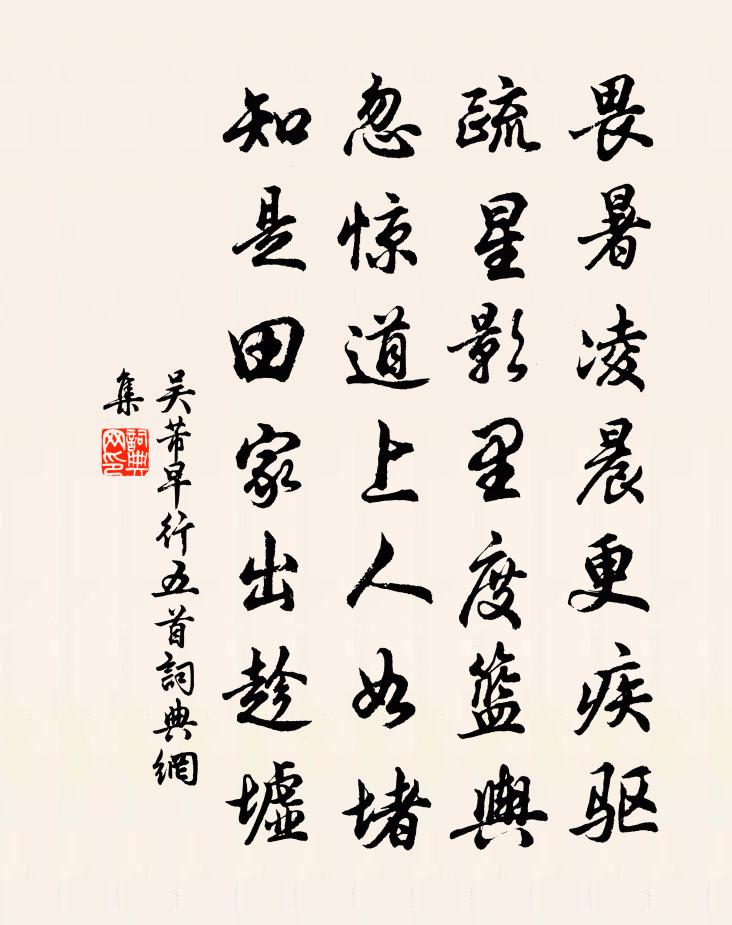 畏暑凌晨更疾驱
疏星影里度篮舆
忽惊道上人如堵
知是田家出趁墟
吴芾早行五首詞典網
集
詞典
网印